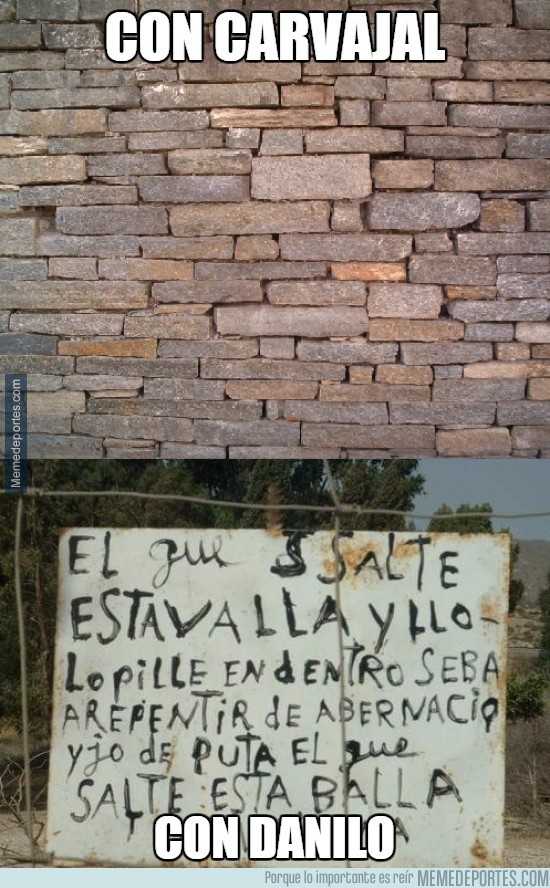 CON CARVAJAL
Memedeportes.com
EL que S SALTE
ESTAVALLA Y LLO-
LO PILLE EN dENTRO SEBA
AREPENTIR dE ABERNACIO
yjo dE PUTA EL que
SALTE ESTA BALLA
CON DANILO
Porque lo importante es reír MEMEDEPORTES.COM